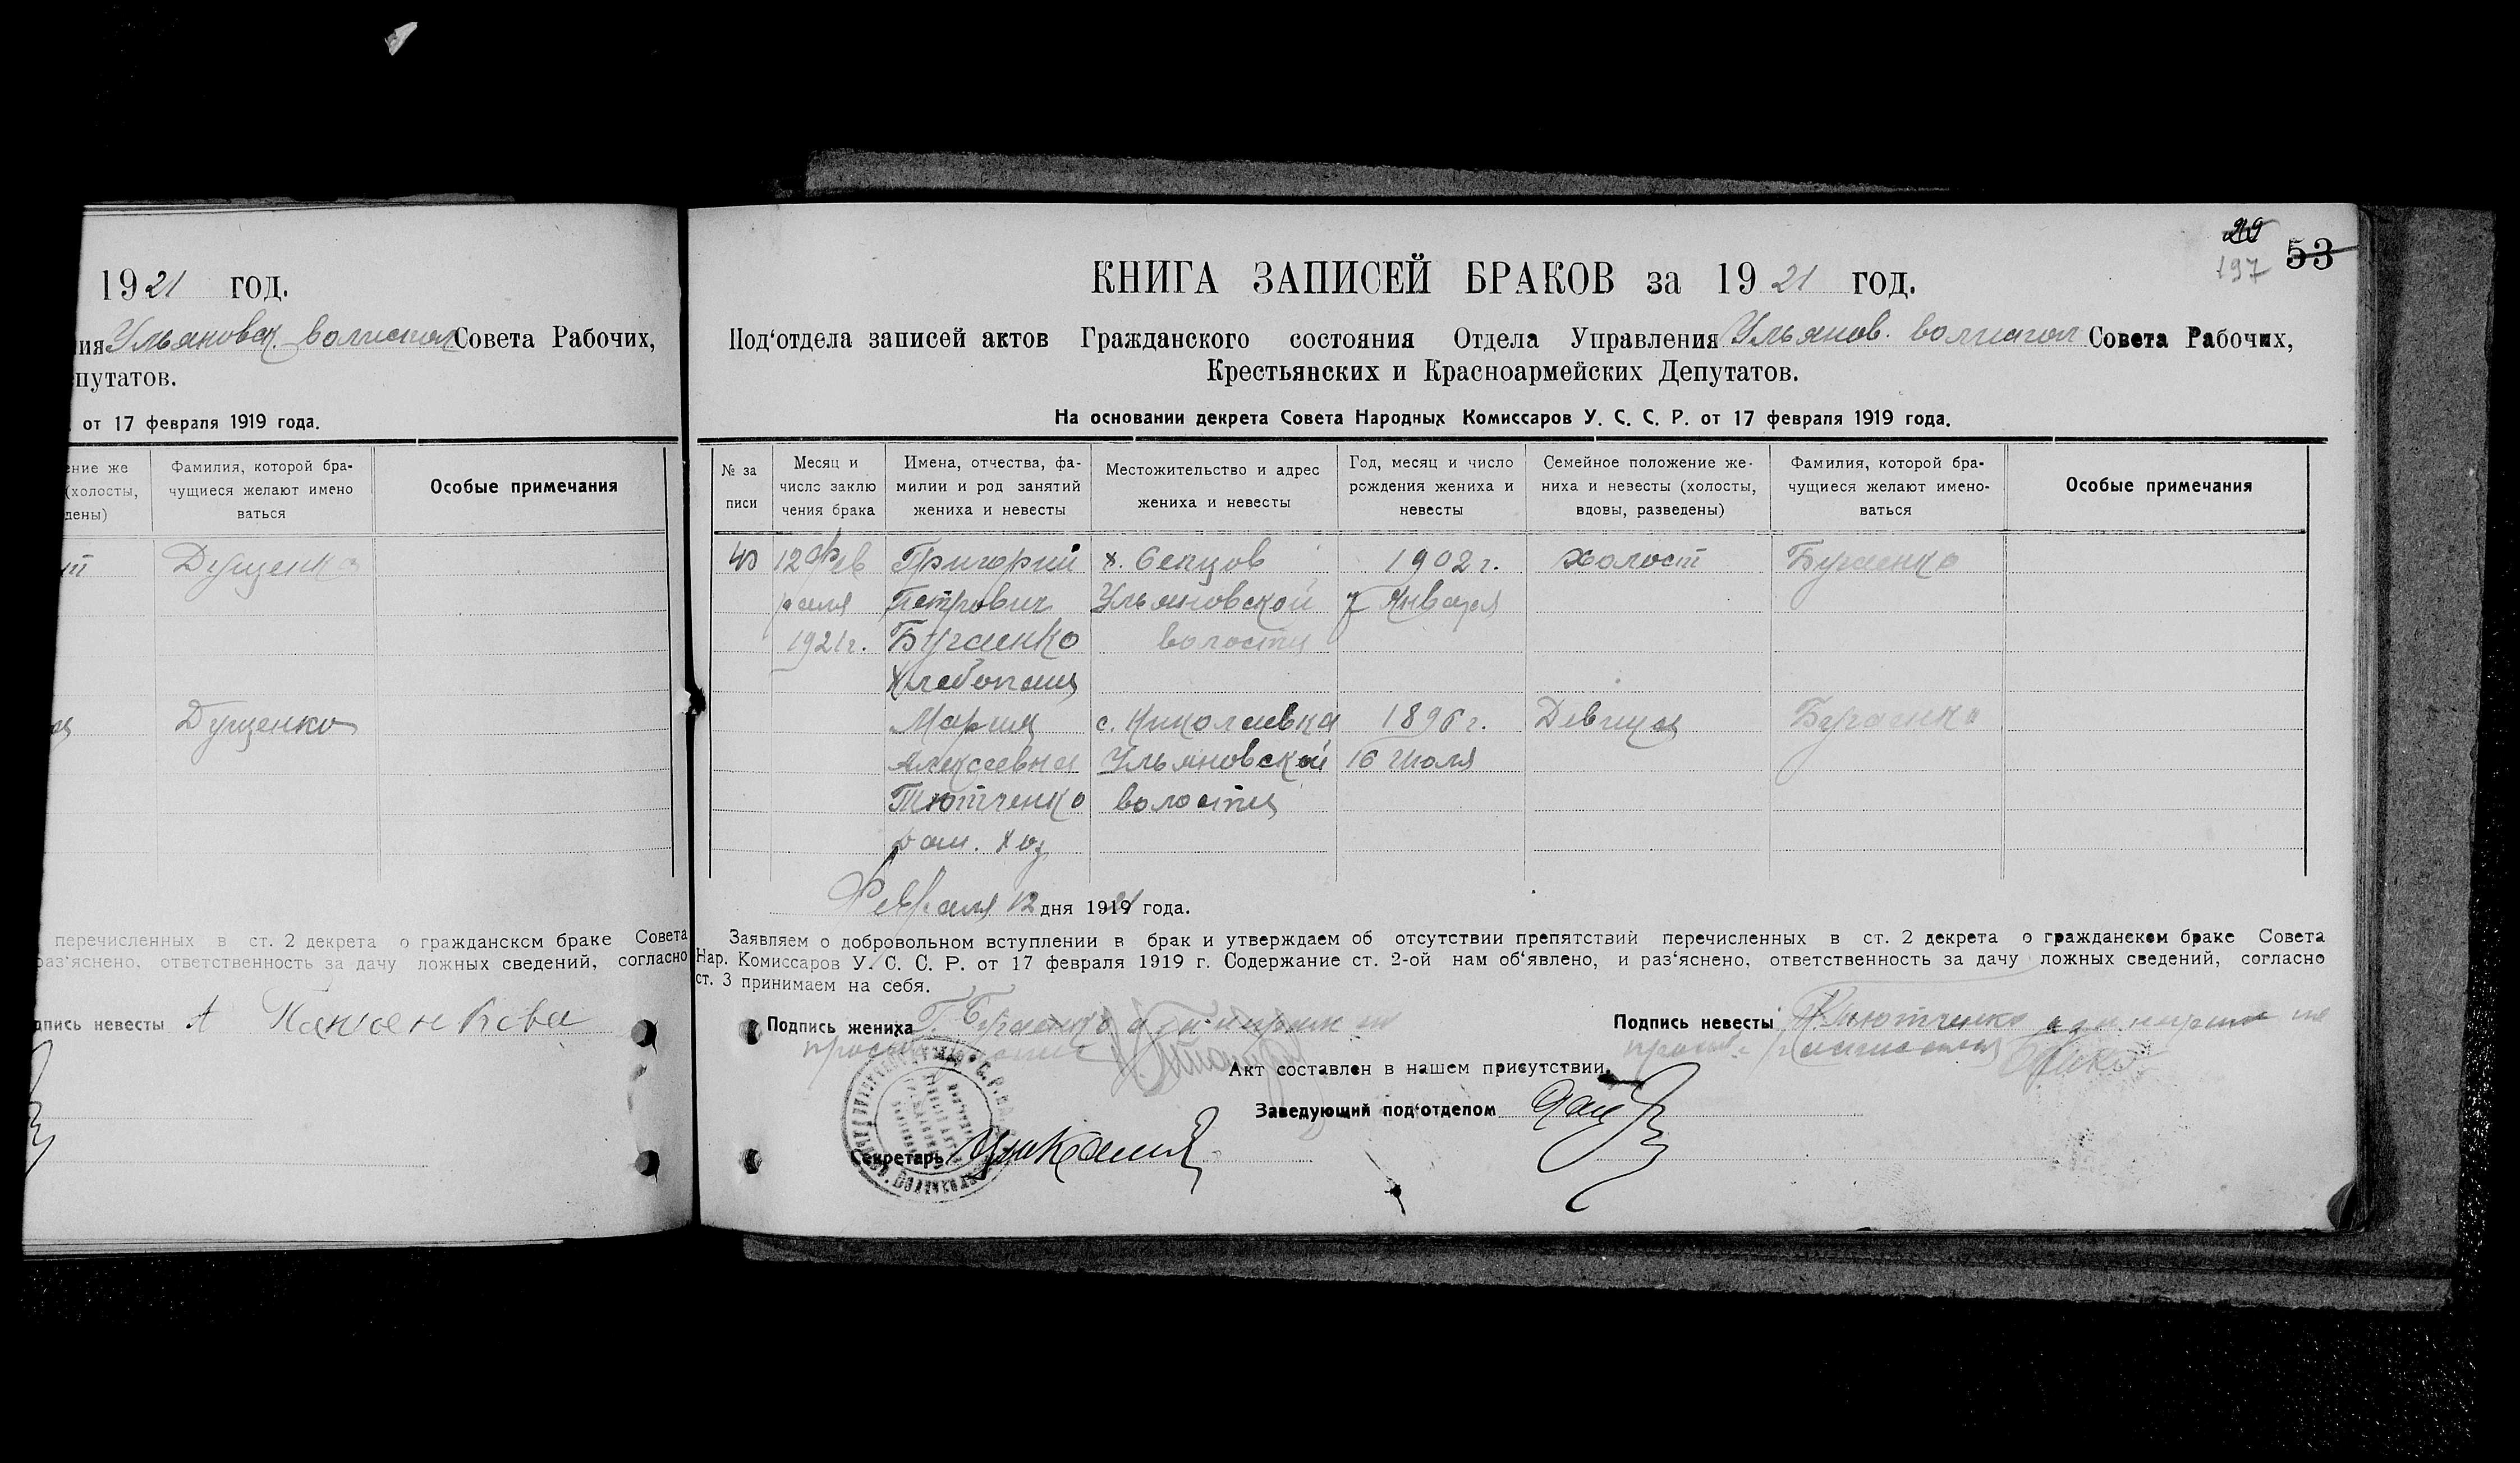 1921 год.
ия Ульяновск. волиспол Совета Рабочих,
епутатов.
от 17 февраля 1919 года.
ение же
(холосты,
дены)
Фамилия, которой бра-
чущиеся желают имено
ваться
Особые примечания
Дущенко
Дущенко
перечисленных в ст. 2 декрета о гражданском браке Совета
раз'яснено, ответственность за дачу ложных сведений, согласно
дпись невесты А
29
197
53
КНИГА ЗАПИСЕЙ БРАКОВ за 1921 год.
Под'отдела записей актов Гражданского состояния Отдела Управления Ульянов. Совета Рабочих,
Крестьянских и Красноармейских Депутатов.
На основании декрета Совета Народных Комиссаров У. С. С. Р. от 17 февраля 1919 года.
№ за
писи
Месяц и
число заклю
чения брака
Имена, отчества, фа-
милии и род занятий
жениха и невесты
Местожительство и адрес
жениха и невесты
Год, месяц и число
рождения жениха и
невесты
Семейное положение же-
ниха и невесты (холосты,
вдовы, разведены)
Фамилия, которой бра-
чущиеся желают имено-
ваться
Особые примечания
40 12 Фев Григорий х. Сенцов 1902 г. холост Бугаенко
раля Петрович Ульяновской 7 Января
1921 г. Бугаенко волости
Хлебопашец
Мария с. Николаевка 1896 г. Девица Бугаенко
Алексеевна Ульяновской 16 Июля
Тютченко волости
дом. хоз
Февраля 12 дня 1921 года.
Заявляем о добровольном вступлении в брак и утверждаем об отсутствии препятствий перечисленных в ст. 2 декрета о гражданском браке Совета
Нар. Комиссаров У. С. С. Р. от 17 февраля 1919 г. Содержание ст. 2-ой нам об'явлено, и раз'яснено, ответственность за дачу ложных сведений, согласно
ст. 3 принимаем на себя.
Подпись жениха Г. Бугаенко
Подпись невесты Тютченко
Акт составлен в нашем присутствии.
Заведующий под'отделом
Секретарь